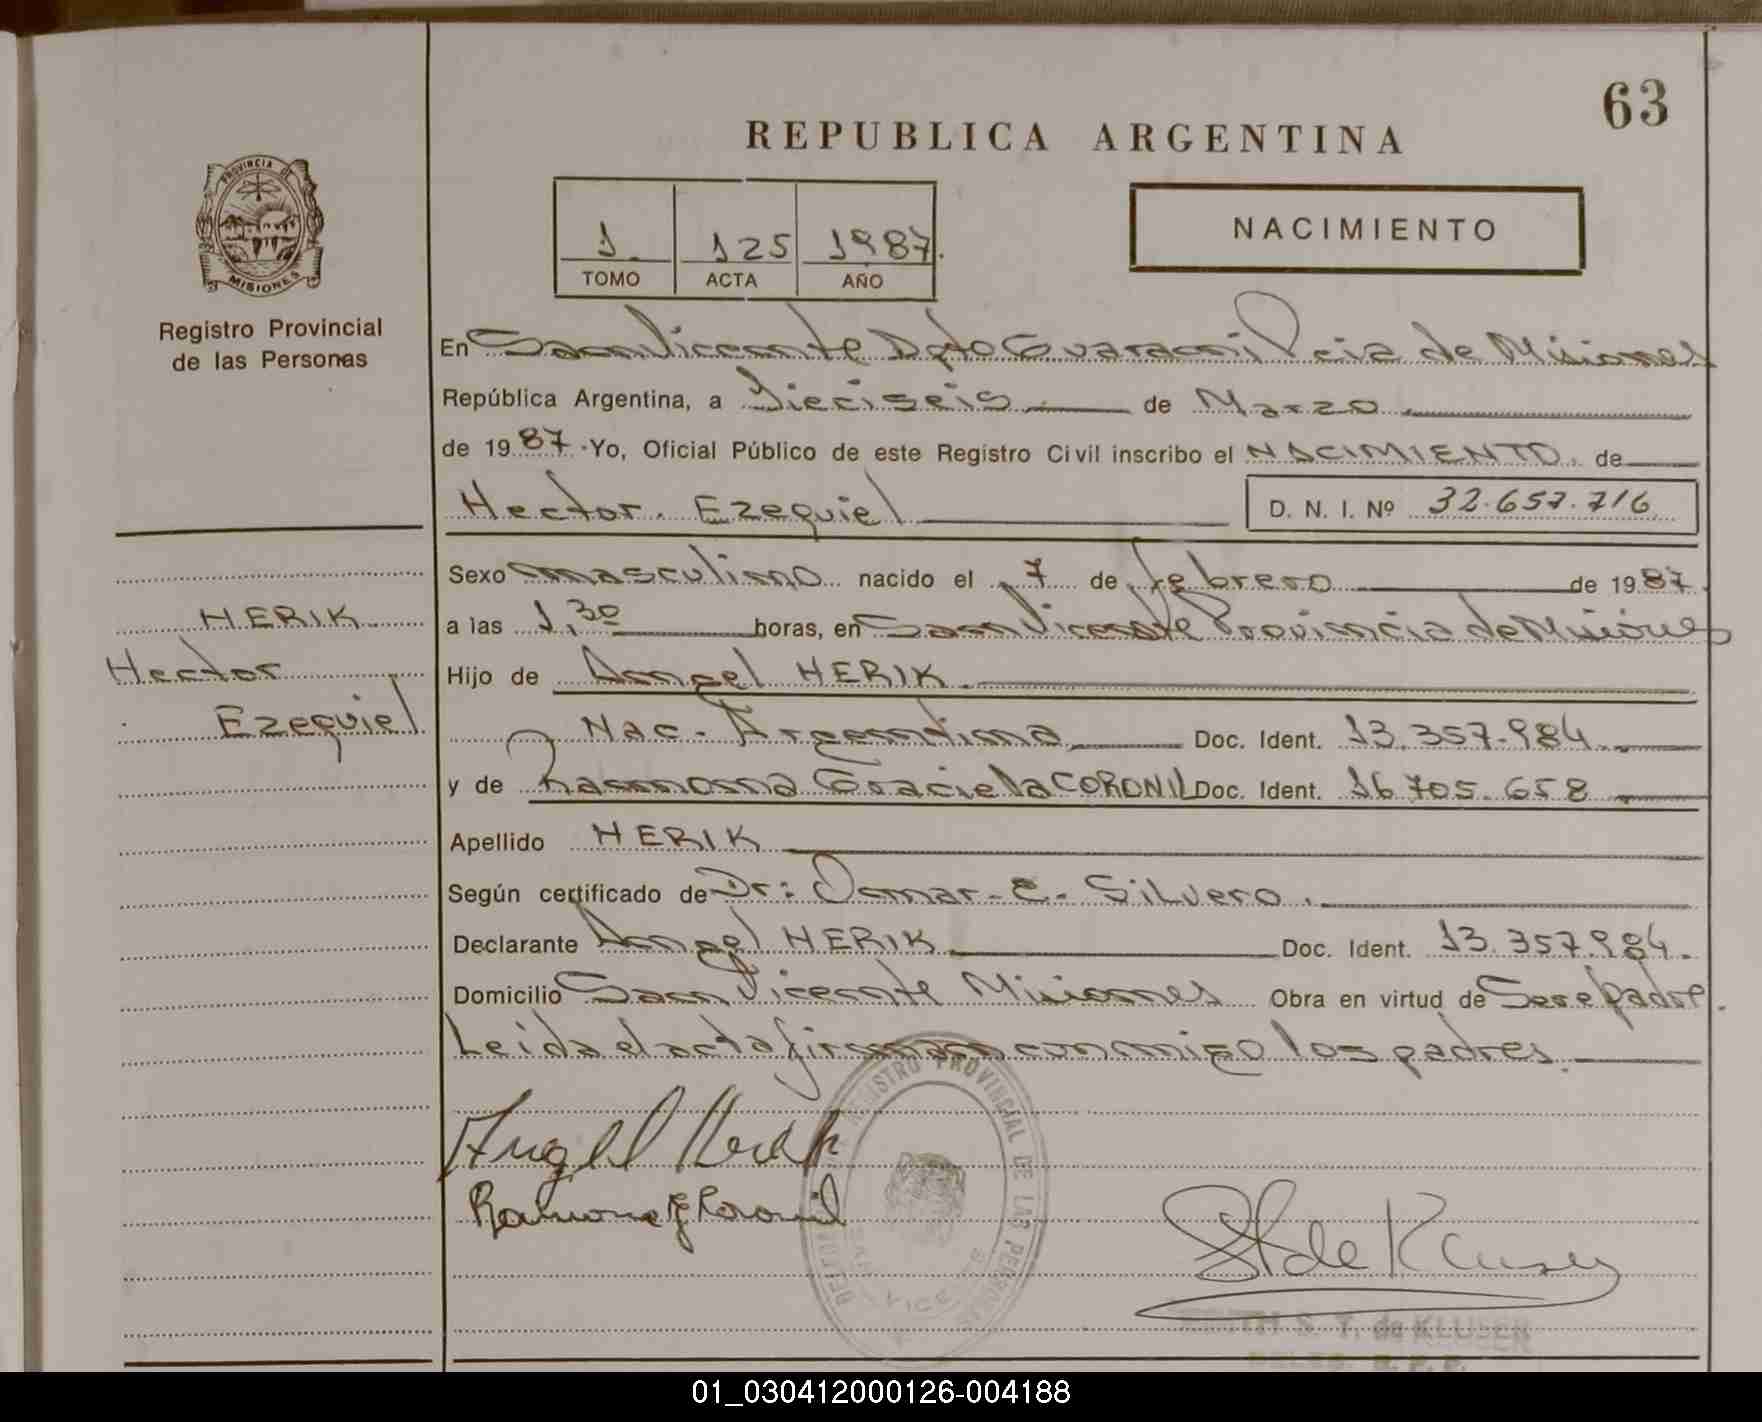 63
REPUBLICA ARGENTINA
PROVINCIA DE
MISIONES
Registro Provincial
de las Personas
1 125 1987
TOMO ACTA AÑO
NACIMIENTO
En San Vicente Dpto Guaraní Pcia de Misiones
República Argentina, a Dieciseis de Marzo
de 1987. Yo, Oficial Público de este Registro Civil inscribo el NACIMIENTO de
Hector Ezequiel D. N. I. Nº 32.657.716
Sexo masculino nacido el 7 de febrero de 1987
HERIK
a las 1,30 horas, en San Vicente Provincia de Misiones
Hector
Hijo de Angel HERIK
Ezequiel
Nac. Argentina Doc. Ident. 13.357.984
y de Ramona Graciela CORONIL Doc. Ident. 16.705.658
Apellido HERIK
Según certificado de Dr: Omar E. Silvero.
Declarante Angel HERIK Doc. Ident. 13.357.984.
Domicilio San Vicente Misiones Obra en virtud de Ser el padre.
Leida el acta firman conmigo los padres.
REGISTRO PROVINCIAL DE LAS PERSONAS
Angel Herik
Ramona G Coronil
S. Y. de KLUSER
01_030412000126-004188